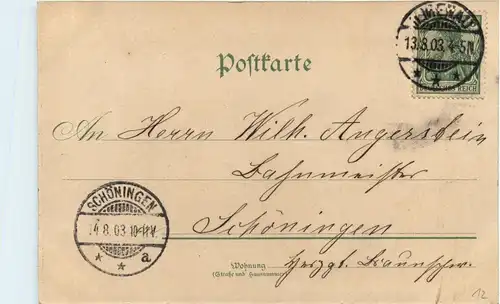 13.8.03. 4-5N.
Postkarte
DEUTSCHES REICH
An Herrn Wilh. Angerstein
Bahnmeister
Schöningen
SCHÖNINGEN
14.8.03 10-11V.
* * a
Wohnung
(Straße und Hausnummer)
Herzgt. Braunschw.
12